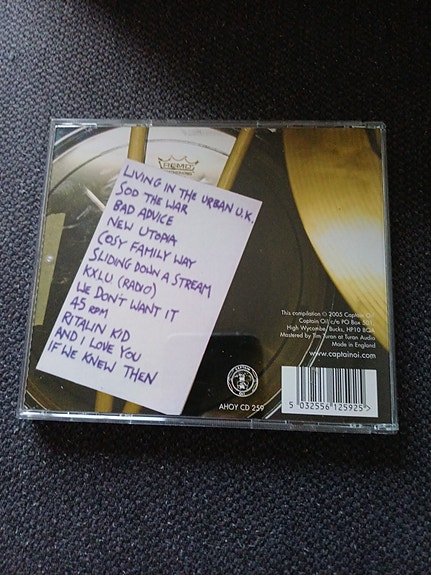 REMO
LIVING IN THE URBAN U.K.
SOD THE WAR
BAD ADVICE
NEW UTOPIA
COSY FAMILY WAY
SLIDING DOWN A STREAM
KXLU (RADIO)
WE DON'T WANT IT
45 RPM
RITALIN KID
AND I LOVE YOU
IF WE KNEW THEN
This compilation © 2005 Captain Oi!
Captain Oi! c/o PO Box 501,
High Wycombe, Bucks, HP10 8QA
Mastered by Tim Turan at Turan Audio
Made in England
www.captainoi.com
AHOY CD 259
5 032556 125925>